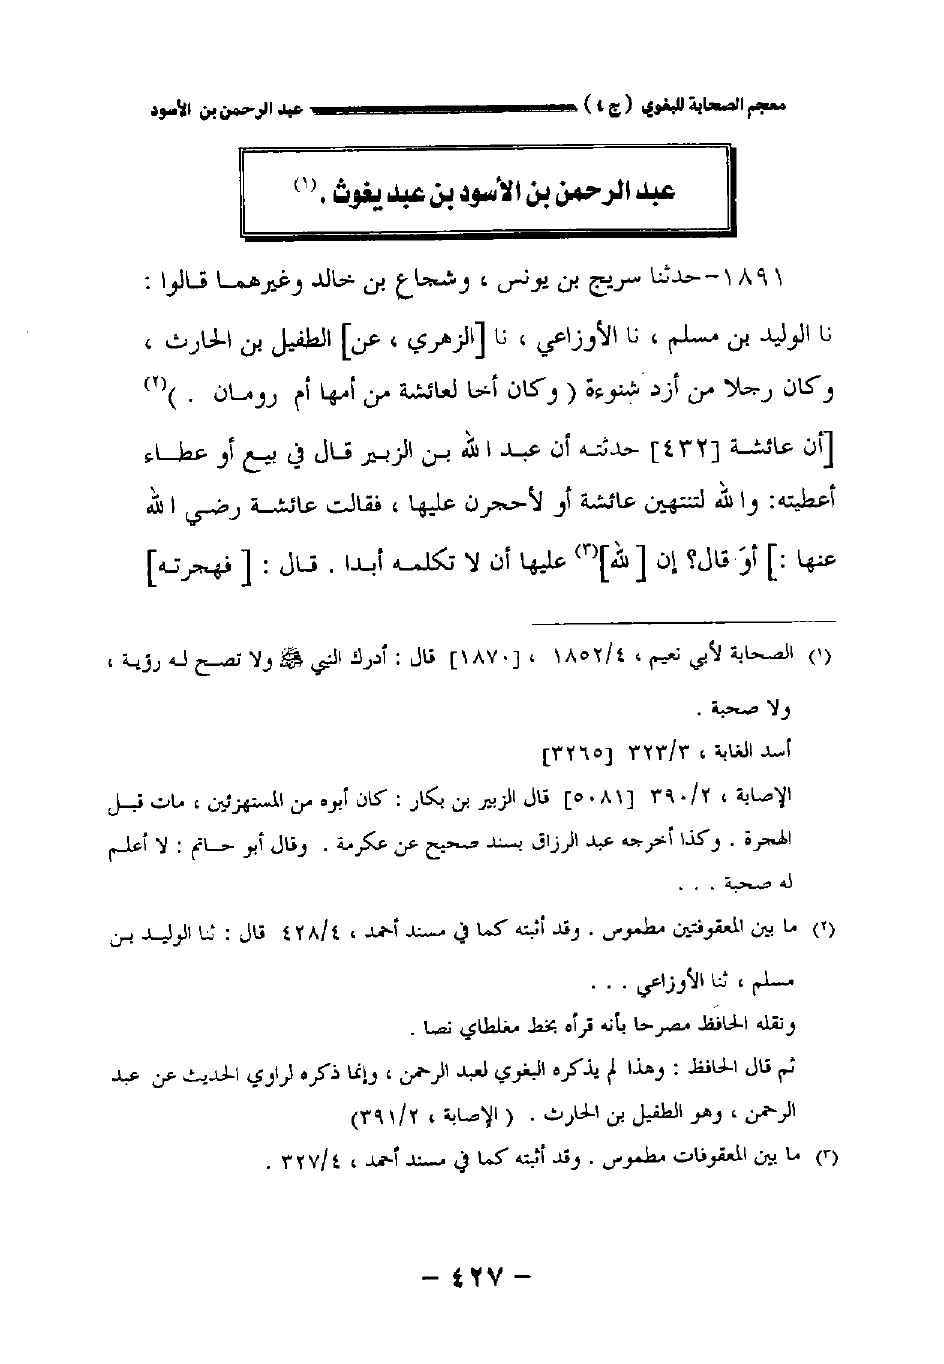 معجم الصحابة للبغوي ( ج ٤ ) عبد الرحمن بن الأسود
عبد الرحمن بن الأسود بن عبد يغوث . (١)
١٨٩١- حدثنا سريج بن يونس ، وشجاع بن خالد وغيرهما قالوا :
نا الوليد بن مسلم ، نا الأوزاعي ، نا [الزهري ، عن] الطفيل بن الحارث ،
وكان رجلا من أزد شنوءة ( وكان أخا لعائشة من أمها أم رومان . )(٢)
[أن عائشة [٤٣٢] حدثته أن عبد الله بن الزبير قال في بيع أو عطاء
أعطيته: والله لتنتهين عائشة أو لأحجرن عليها ، فقالت عائشة رضي الله
عنها :] أوَ قال؟ إن [ لله](٣) عليها أن لا تكلمه أبدا . قال : [ فهجرته]
(١) الصحابة لأبي نعيم ، ١٨٥٢/٤ ، [١٨٧٠] قال : أدرك النبي ﷺ ولا تصح له رؤية ،
ولا صحبة .
أسد الغابة ، ٣٢٣/٣ [٣٢٦٥]
الإصابة ، ٣٩٠/٢ [٥٠٨١] قال الزبير بن بكار : كان أبوه من المستهزئين ، مات قبل
الهجرة . وكذا أخرجه عبد الرزاق بسند صحيح عن عكرمة . وقال أبو حاتم : لا أعلم
له صحبة . . .
(٢) ما بين المعقوفتين مطموس . وقد أثبته كما في مسند أحمد ، ٤٢٨/٤ قال : ثنا الوليد بن
مسلم ، ثنا الأوزاعي . . .
ونقله الحافظ مصرحا بأنه قرأه بخط مغلطاي نصا .
ثم قال الحافظ : وهذا لم يذكره البغوي لعبد الرحمن ، وإنما ذكره لراوي الحديث عن عبد
الرحمن ، وهو الطفيل بن الحارث . ( الإصابة ، ٣٩١/٢)
(٣) ما بين المعقوفات مطموس . وقد أثبته كما في مسند أحمد ، ٣٢٧/٤ .
- ٤٢٧ -